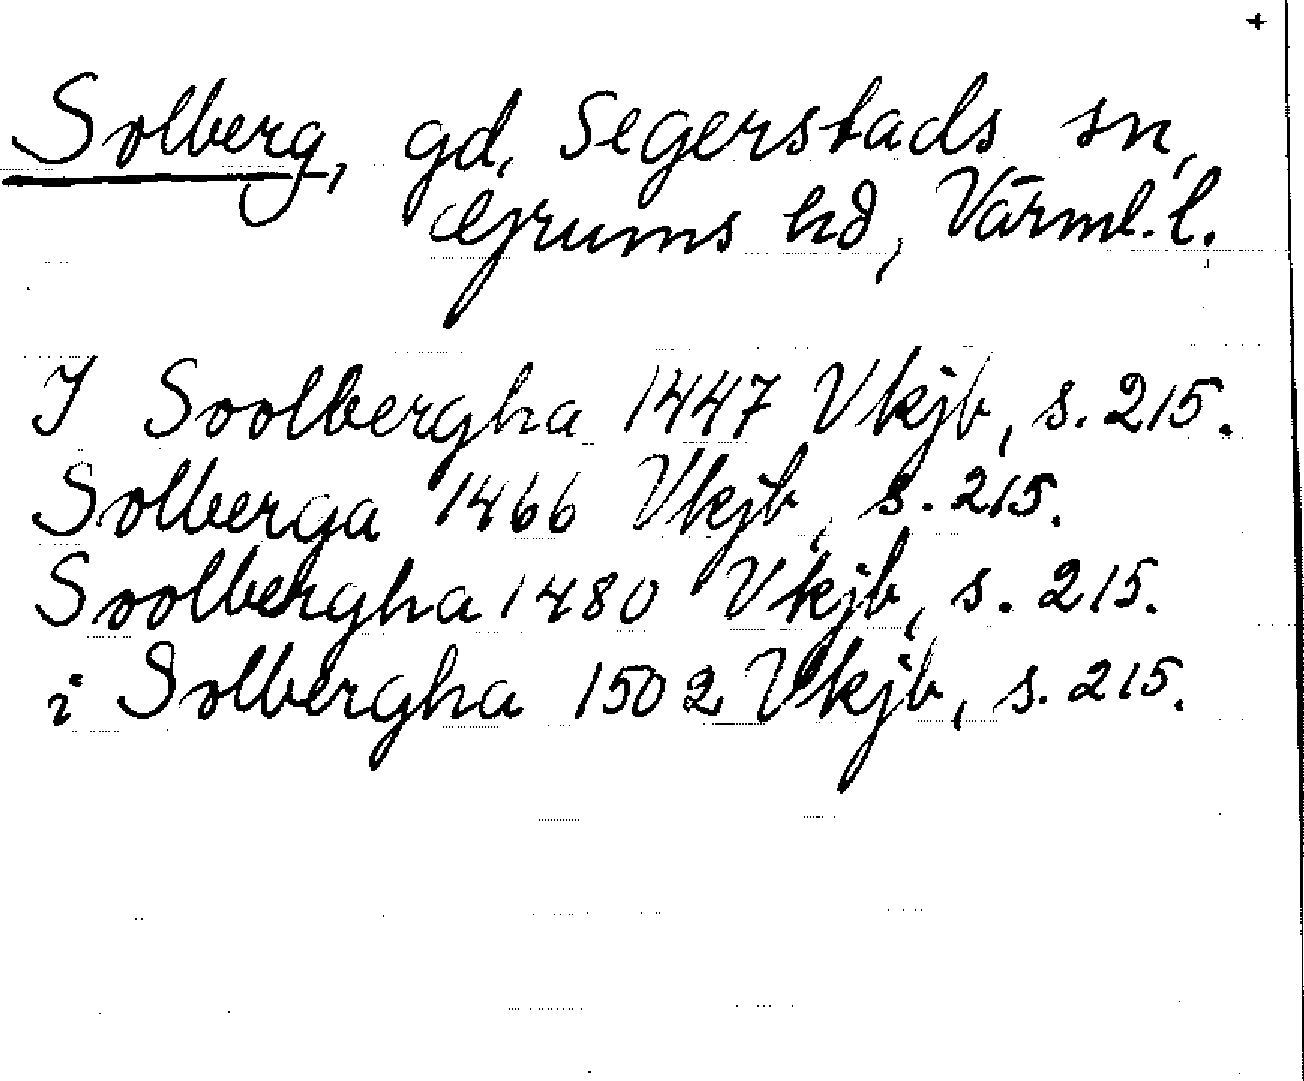 +
Solberg, gd, Segerstads sn,
Grums hd, Värml. l.
I Soolbergha 1447 Vkjb, s. 215.
Solberga 1466 Vkjb, s. 215.
Soolbergha 1480 Vkjb, s. 215.
i Solbergha 1502 Vkjb, s. 215.